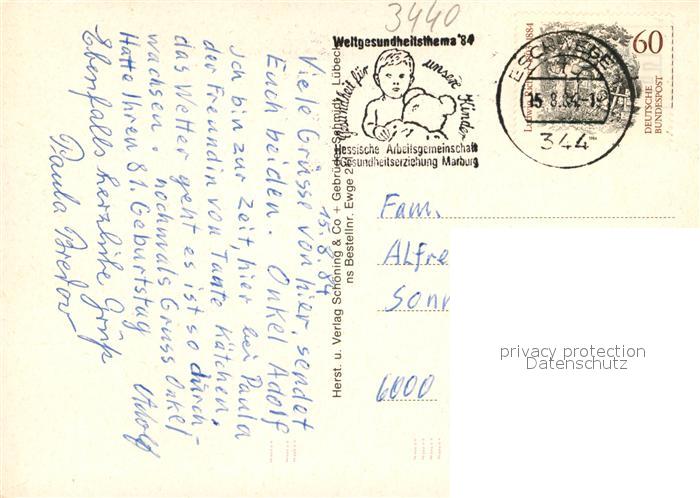 3440
Weltgesundheitsthema '84
Gesundheit für unsere Kinder
Hessische Arbeitsgemeinschaft
Gesundheitserziehung Marburg
ESCHWEGE
15.8.84-1
344
1884
60
DEUTSCHE
BUNDESPOST
15.8.84
Viele Grüsse von hier, sendet
Euch beiden. Onkel Adolf
Ich bin zur Zeit, hier bei Paula
der Freundin von Tante Kätchen.
das Wetter geht es ist so durch-
wachsen. nochmals Gruss Onkel
Hatte Ihren 81. Geburtstag Adolf
Ebenfalls herzliche Grüße
Paula Bredow
Herst. u. Verlag Schöning & Co + Gebrüder Schmidt, Lübeck
ns Bestellnr. Ewge 2
Fam.
Alfre
Sonn
6000
privacy protection
Datenschutz